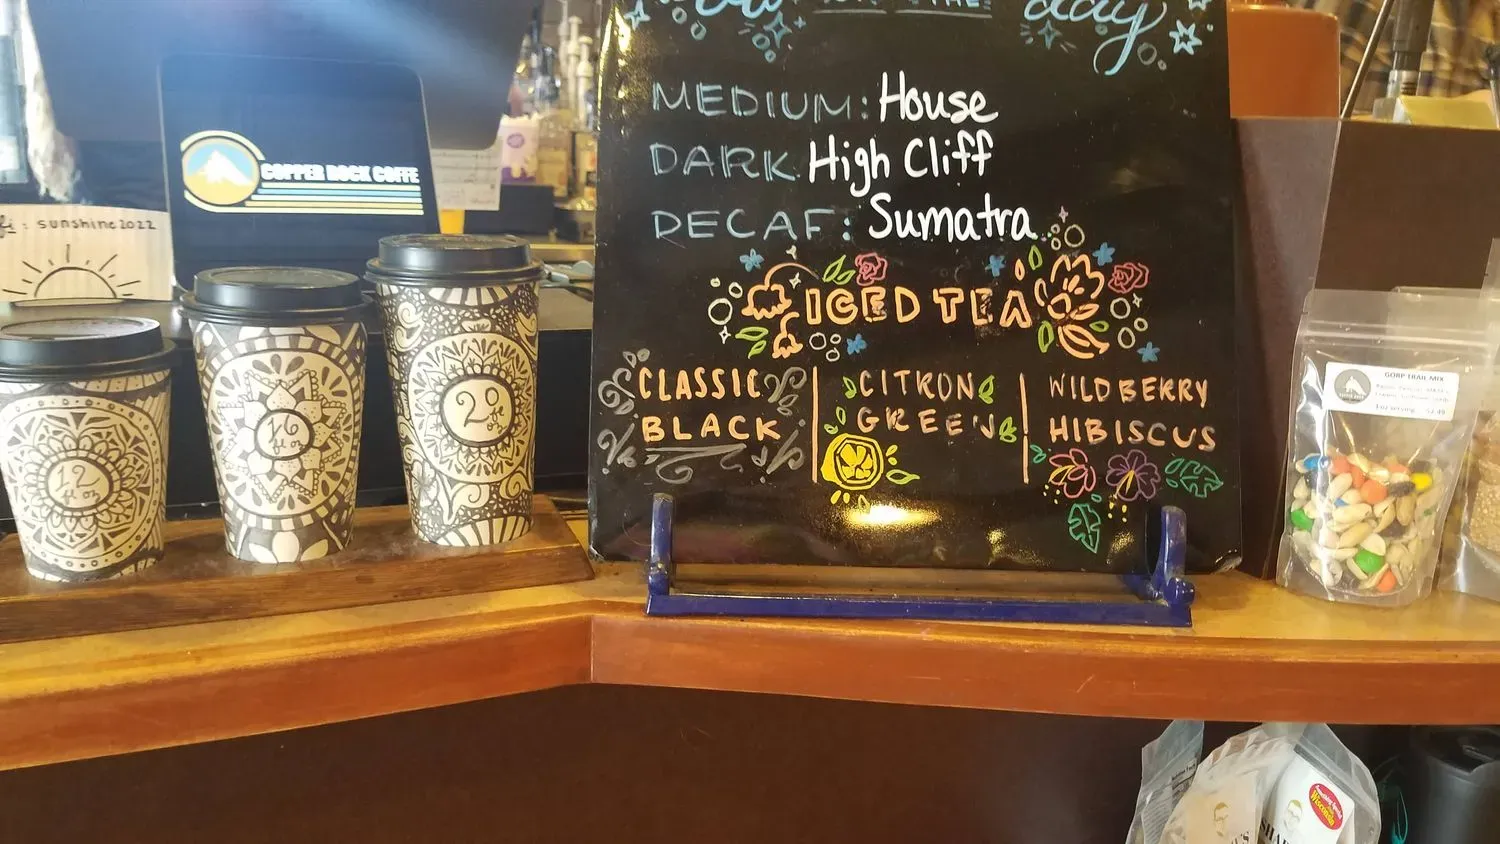 THE
day
MEDIUM: House
DARK High Cliff
DECAF: Sumatra
ICED TEA
CLASSIC
BLACK
CITRON
GREEN
WILDBERRY
HIBISCUS
COPPER ROCK COFFE
: sunshine2022
12
oz
16
oz
20
oz
GORP TRAIL MIX
Wisconsin